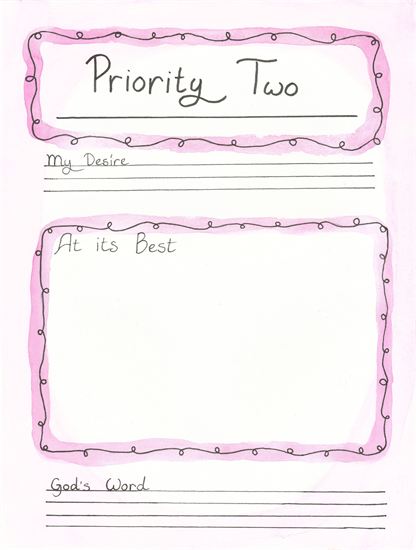 Priority Two
My Desire
At its Best
God's Word